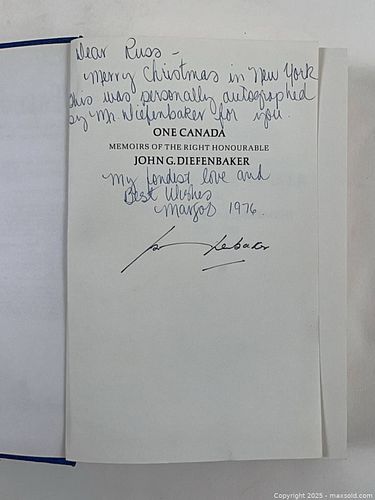 Dear Russ -
Merry Christmas in New York
this was personally autographed
by Mr Diefenbaker for you.
ONE CANADA
MEMOIRS OF THE RIGHT HONOURABLE
JOHN G. DIEFENBAKER
My fondest love and
Best Wishes
Margot 1976.
Copyright 2025 - maxsold.com